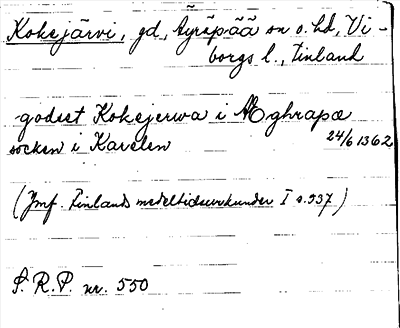 Kokejärvi, gd, Äyräpää sn o. hd, Vi-
borgs l., Finland
godset Kokejerwa i Æghrapæ
socken i Karelen 24/6 1362
(Jmf. Finlands medeltidsurkunder I s. 337)
S. R. P. nr. 550